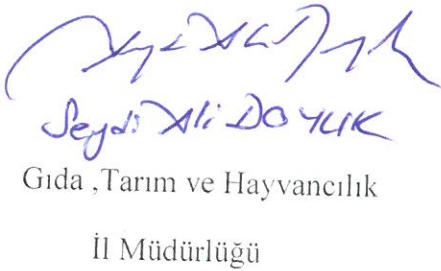 Seydi Ali DOYUK
Gıda ,Tarım ve Hayvancılık
İl Müdürlüğü